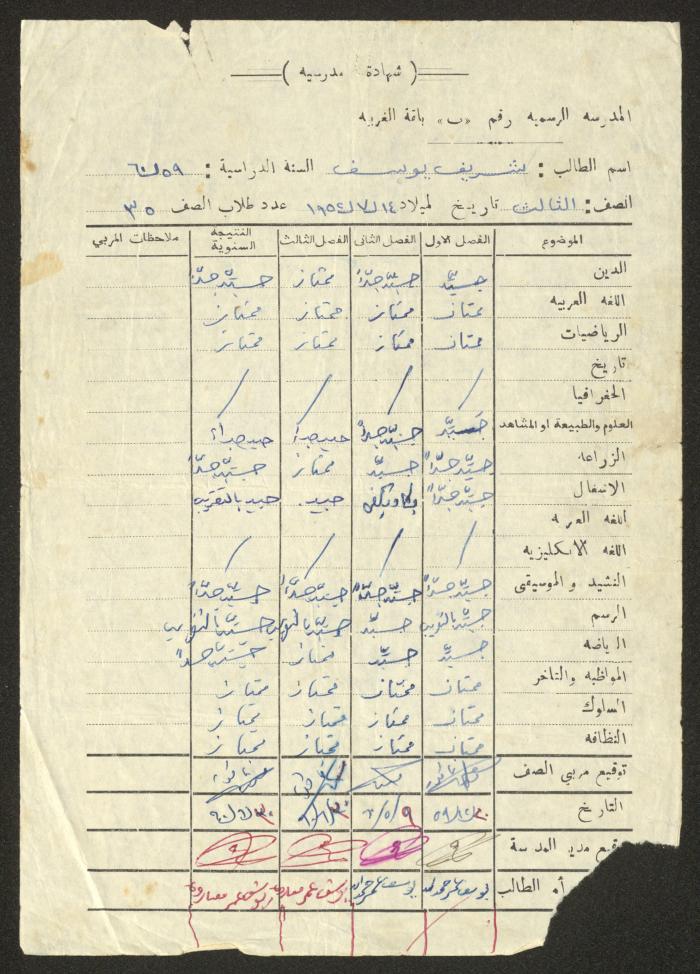 ( شهادة مدرسيه )
المدرسه الرسميه رقم «ب» باقة الغربيه
اسم الطالب : شريف يوسف السنة الدراسية : ٥٩-٦٠
الصف : الثالث تاريخ لميلاد ١٤/٧/١٩٥٤ عدد طلاب الصف ٣٥
الموضوع الفصل الاول الفصل الثاني الفصل الثالث النتيجه السنوية ملاحظات المربي
الدين جيّد جيّد جدًّا ممتاز جيّد جدًّا
اللغه العربيه ممتاز ممتاز ممتاز ممتاز
الرياضيات ممتاز ممتاز ممتاز ممتاز
تاريخ
الجغرافيا / / / /
العلوم والطبيعة او المشاهد جيّد جيّد جداً جيد جداً جيد جداً
الزراعه جيّد جدًّا جيّد ممتاز جيّد جدًّا
الاشغال جيّد جدًّا جيد جيد بالتقريب
اللغه العبريه
اللغه الانكليزيه / / / /
النشيد والموسيقى جيّد جدًّا جيّد جدًّا جيّد جدًّا جيّد جدًّا
الرسم جيّد بالتقريب جيّد جيّد بالتقريب جيّد بالتقريب
الرياضه جيّد جيّد ممتاز جيّد جداً
المواظبه والتاخر ممتاز ممتاز ممتاز ممتاز
السلوك ممتاز ممتاز ممتاز ممتاز
النظافه ممتاز ممتاز ممتاز ممتاز
توقيع مربي الصف
التاريخ
توقيع مدير المدرسة
أم الطالب